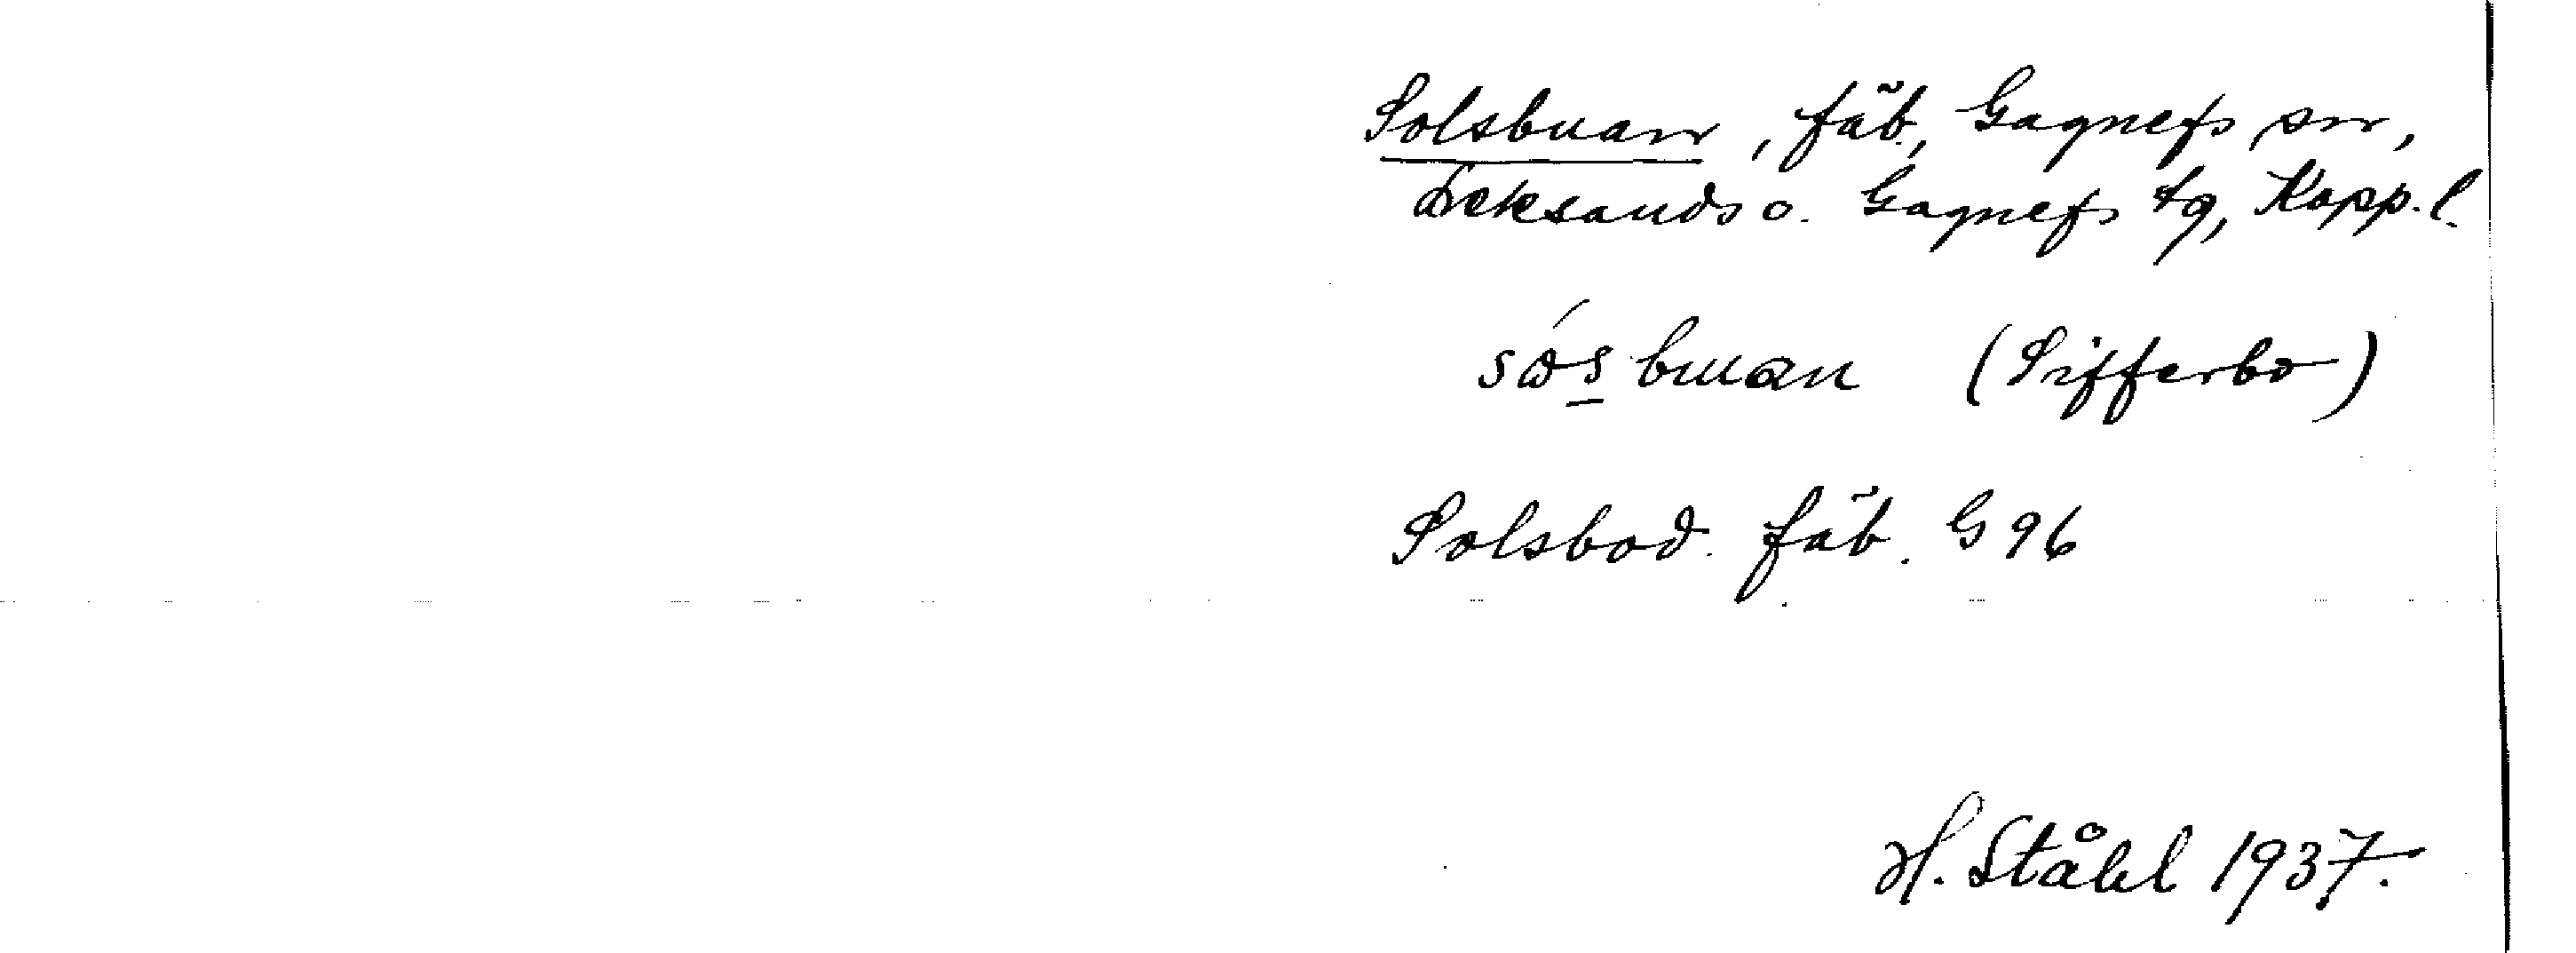 Solsbuan, fäb., Gagnefs sn,
Leksands o. Gagnefs tg, Kopp. l.
sós buan (Sifferbo)
Solsbod. fäb. G 96
H. Ståhl 1937.